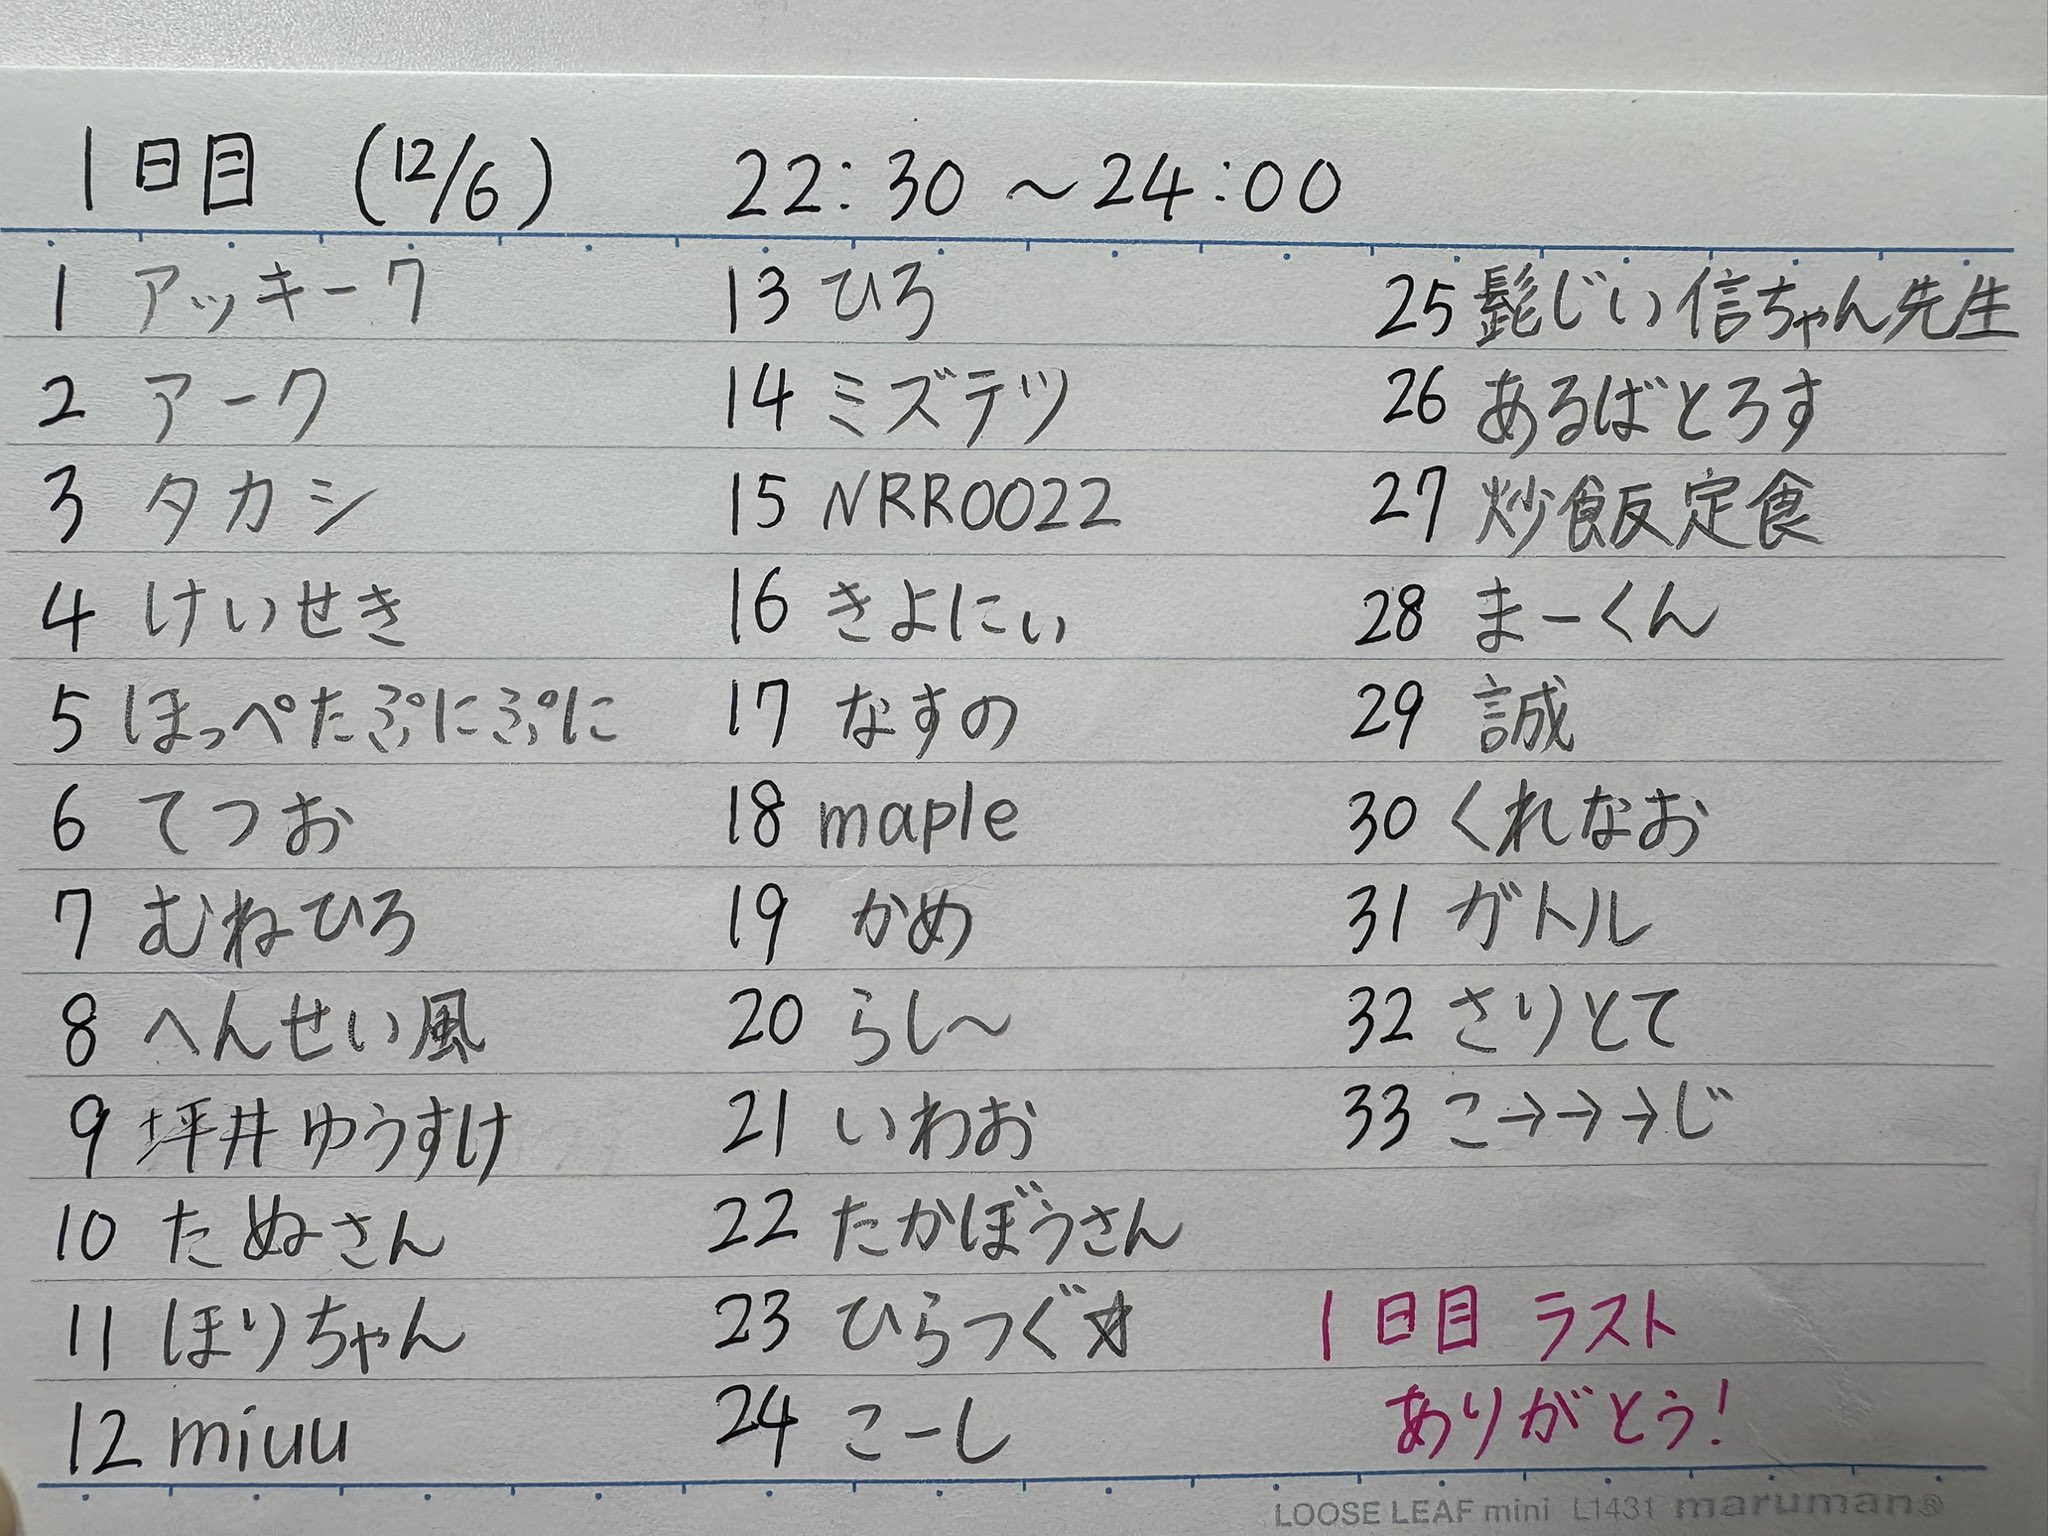 1日目 (12/6) 22:30～24:00
1 アッキーワ
2 アーク
3 タカシ
4 けいせき
5 ほっぺたぷにぷに
6 てつお
7 むねひろ
8 へんせい風
9 坪井ゆうすけ
10 たぬさん
11 ほりちゃん
12 miuu
13 ひろ
14 ミズテツ
15 NRR0022
16 きよにぃ
17 なすの
18 maple
19 かめ
20 らし～
21 いわお
22 たかぼうさん
23 ひらつぐ☆
24 こーし
25 髭じい信ちゃん先生
26 あるばとろす
27 炒飯定食
28 まーくん
29 誠
30 くれなお
31 ガトル
32 さりとて
33 こ→→→じ
1日目 ラスト
ありがとう!
LOOSE LEAF mini L1431 maruman®